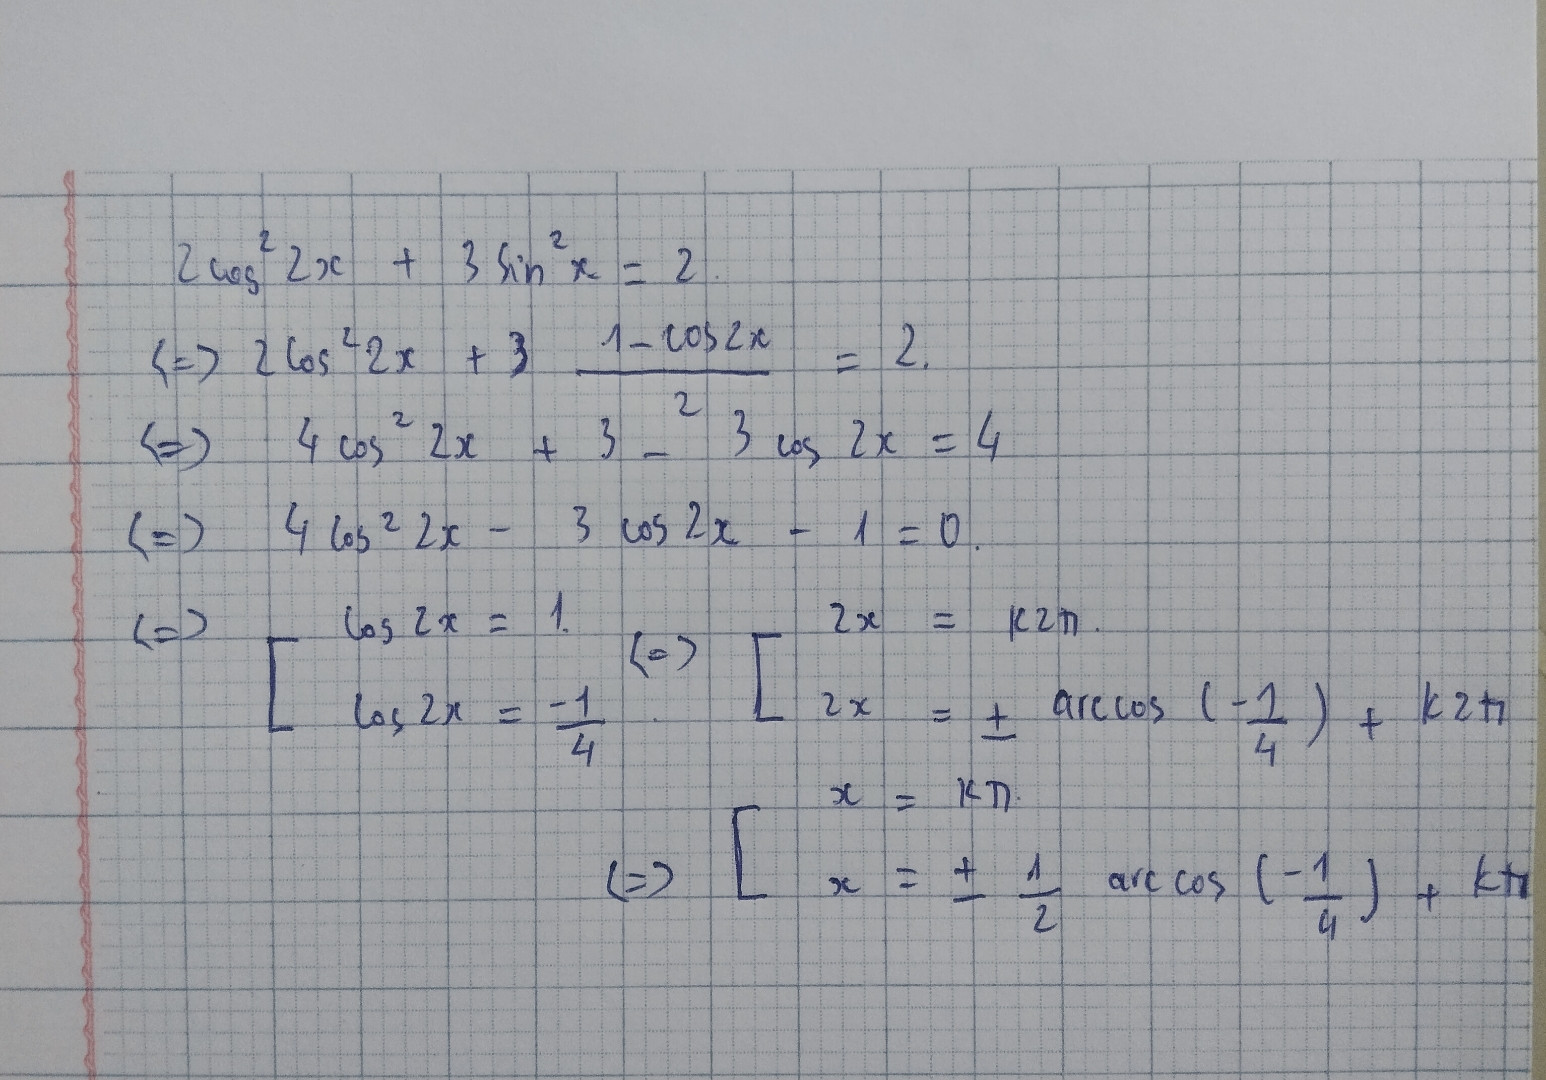 2cos²2x + 3 sin²x = 2.
(=) 2cos²2x + 3 (1-cos2x)/2 = 2.
(=) 4cos²2x + 3 - 3 cos 2x = 4
(=) 4cos²2x - 3 cos2x - 1 = 0.
(=) [ cos2x = 1. ; cos2x = -1/4 . (=) [ 2x = k2π. ; 2x = ± arccos (-1/4) + k2π
(=) [ x = kπ. ; x = ± 1/2 arccos (-1/4) + kπ